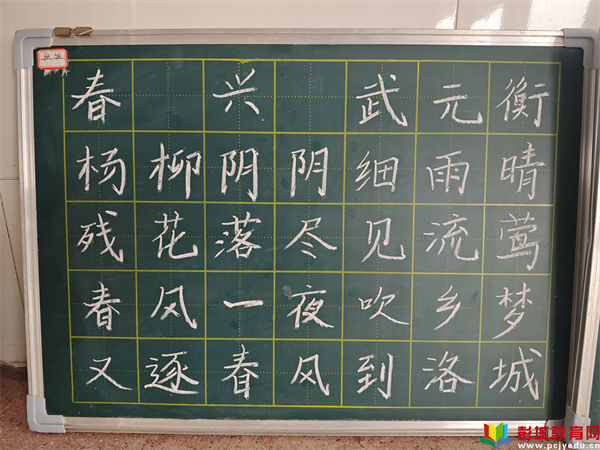 春 兴 武元衡
杨柳阴阴细雨晴
残花落尽见流莺
春风一夜吹乡梦
又逐春风到洛城
彭城教育网
www.pcjyedu.cn